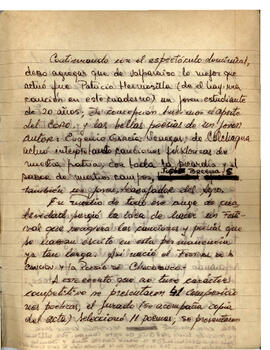 Continuando con el espectáculo dominical,
debo agregar que de Valparaíso lo mejor que
actuó fue Patricio Hermosilla (de él hay una
canción en este cuaderno) un joven estudiante
de 20 años. De Concepción tuvimos el aporte
del Coro. y las bellas poesías de un joven
autor: Eugenio García
actuó interpretando canciones folklóricas de
nuestra patria, con toda la picardía y el
sabor de nuestros campos,
también un joven trabajador del Agro.
En medio de todo ese auge de acti
vidad surgió la idea de hacer un Fes-
tival que recogiera las canciones y poesías que
se habían escrito en esta permanencia
ya tan larga. Así nació el Festival de la
Canción y la Poesía de Chacabuco.
Este encuentro que tuvo carácter
competitivo se presentaron 41 composicio
nes poéticas, el jurado (
del acta) seleccionó 11 poemas; se presentaron